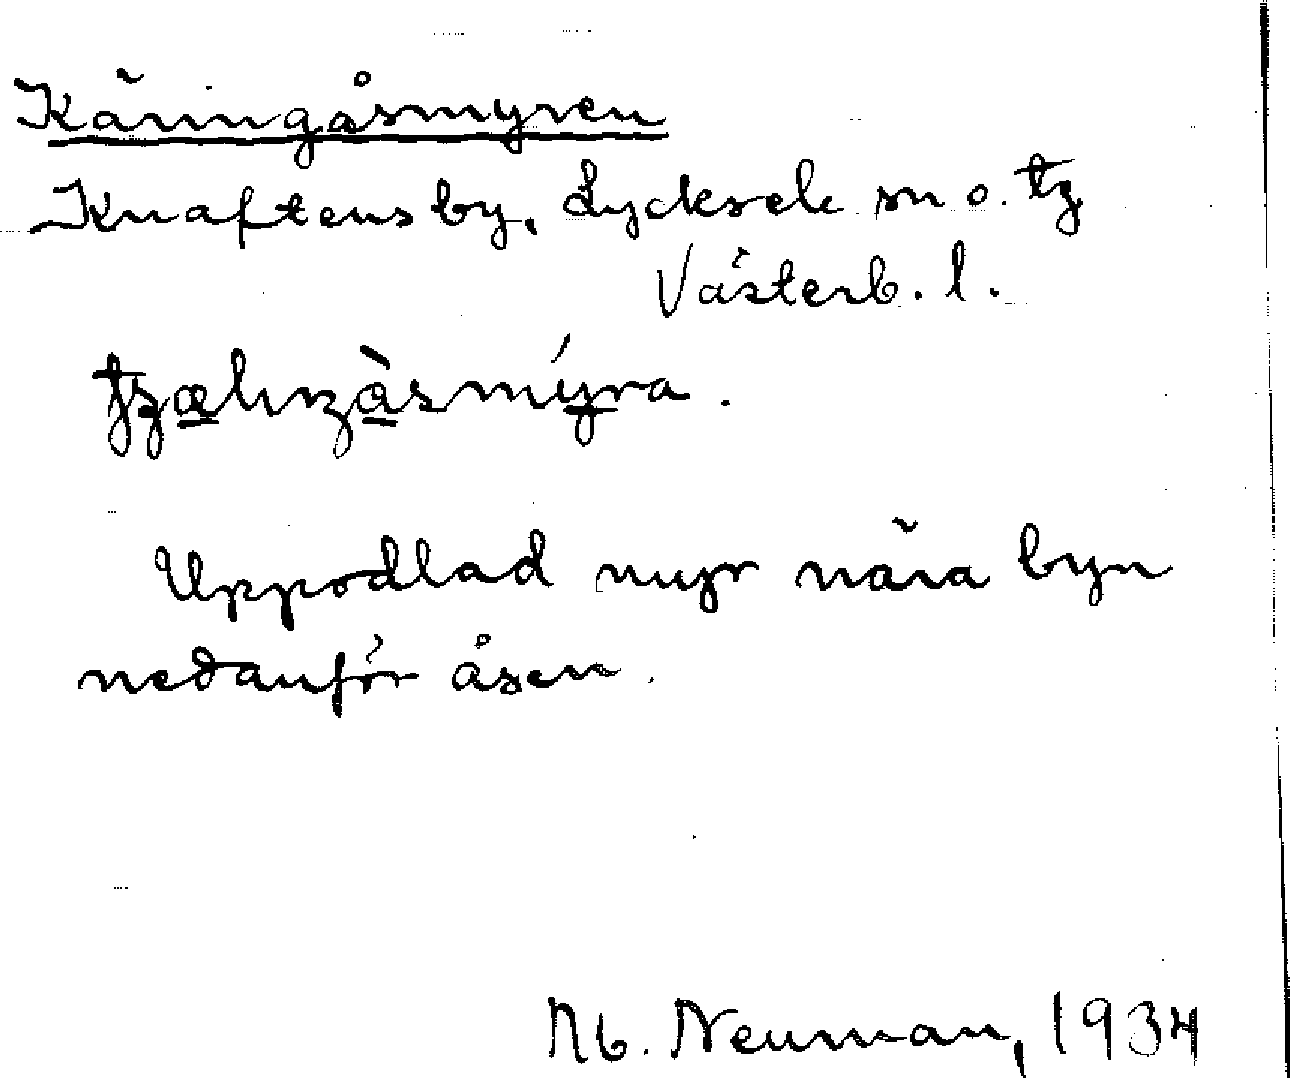 Käringåsmyren
Knaftens by, Lycksele sn o. tg
Västerb. l.
Uppodlad myr nära byn
nedanför åsen.
Ab. Neuman, 1934